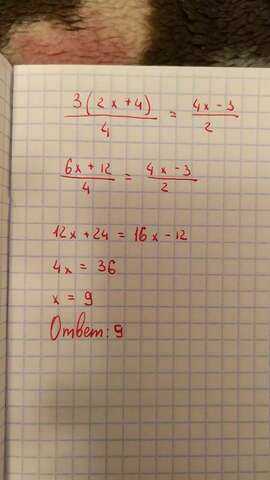 3(2x+4)/4 = 4x-3/2
6x+12/4 = 4x-3/2
12x+24 = 16x-12
4x = 36
x = 9
Ответ: 9